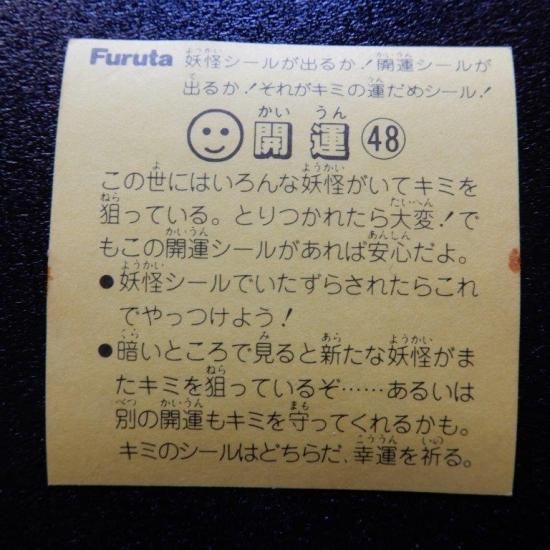 Furuta 妖怪シールが出るか!開運シールが
出るか!それがキミの運だめシール!
開運 48
この世にはいろんな妖怪がいてキミを
狙っている。とりつかれたら大変!で
もこの開運シールがあれば安心だよ。
●妖怪シールでいたずらされたらこれ
でやっつけよう!
●暗いところで見ると新たな妖怪がま
たキミを狙っているぞ……あるいは
別の開運もキミを守ってくれるかも。
キミのシールはどちらだ、幸運を祈る。